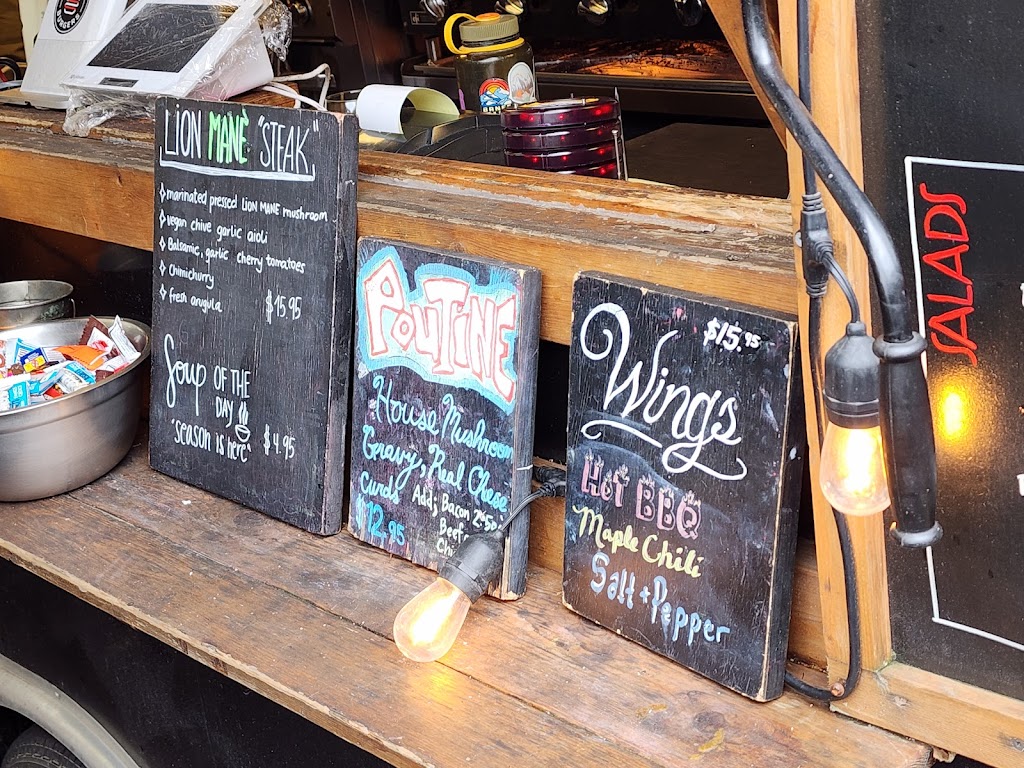 LION MANE "STEAK"
marinated pressed LION MANE mushroom
vegan chive garlic aioli
Balsamic, garlic cherry tomatoes
Chimichurry
fresh arugula $15.95
Soup OF THE
DAY
"SEASON IS HERE" $4.95
POUTINE
House Mushroom
Gravy, Real Cheese
Curds Add; Bacon
Beef
$12.95
Wings
$15.95
HOT BBQ
Maple Chili
Salt + Pepper
SALADS